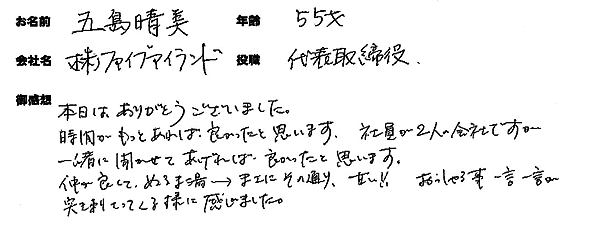 お名前 五島晴美 年齢 55才
会社名 (株)ファイブアイランド 役職 代表取締役.
御感想 本日は ありがとう ございました。
時間が もっと あれば 良かったと 思います、社員が2人の会社ですが
一緒に 聞かせて あげれば 良かったと 思います。
仲が良くて、ぬるま湯→まさに その通り、甘い!! おっしゃる事 一言一言が
突き刺さってくる様に 感じました。